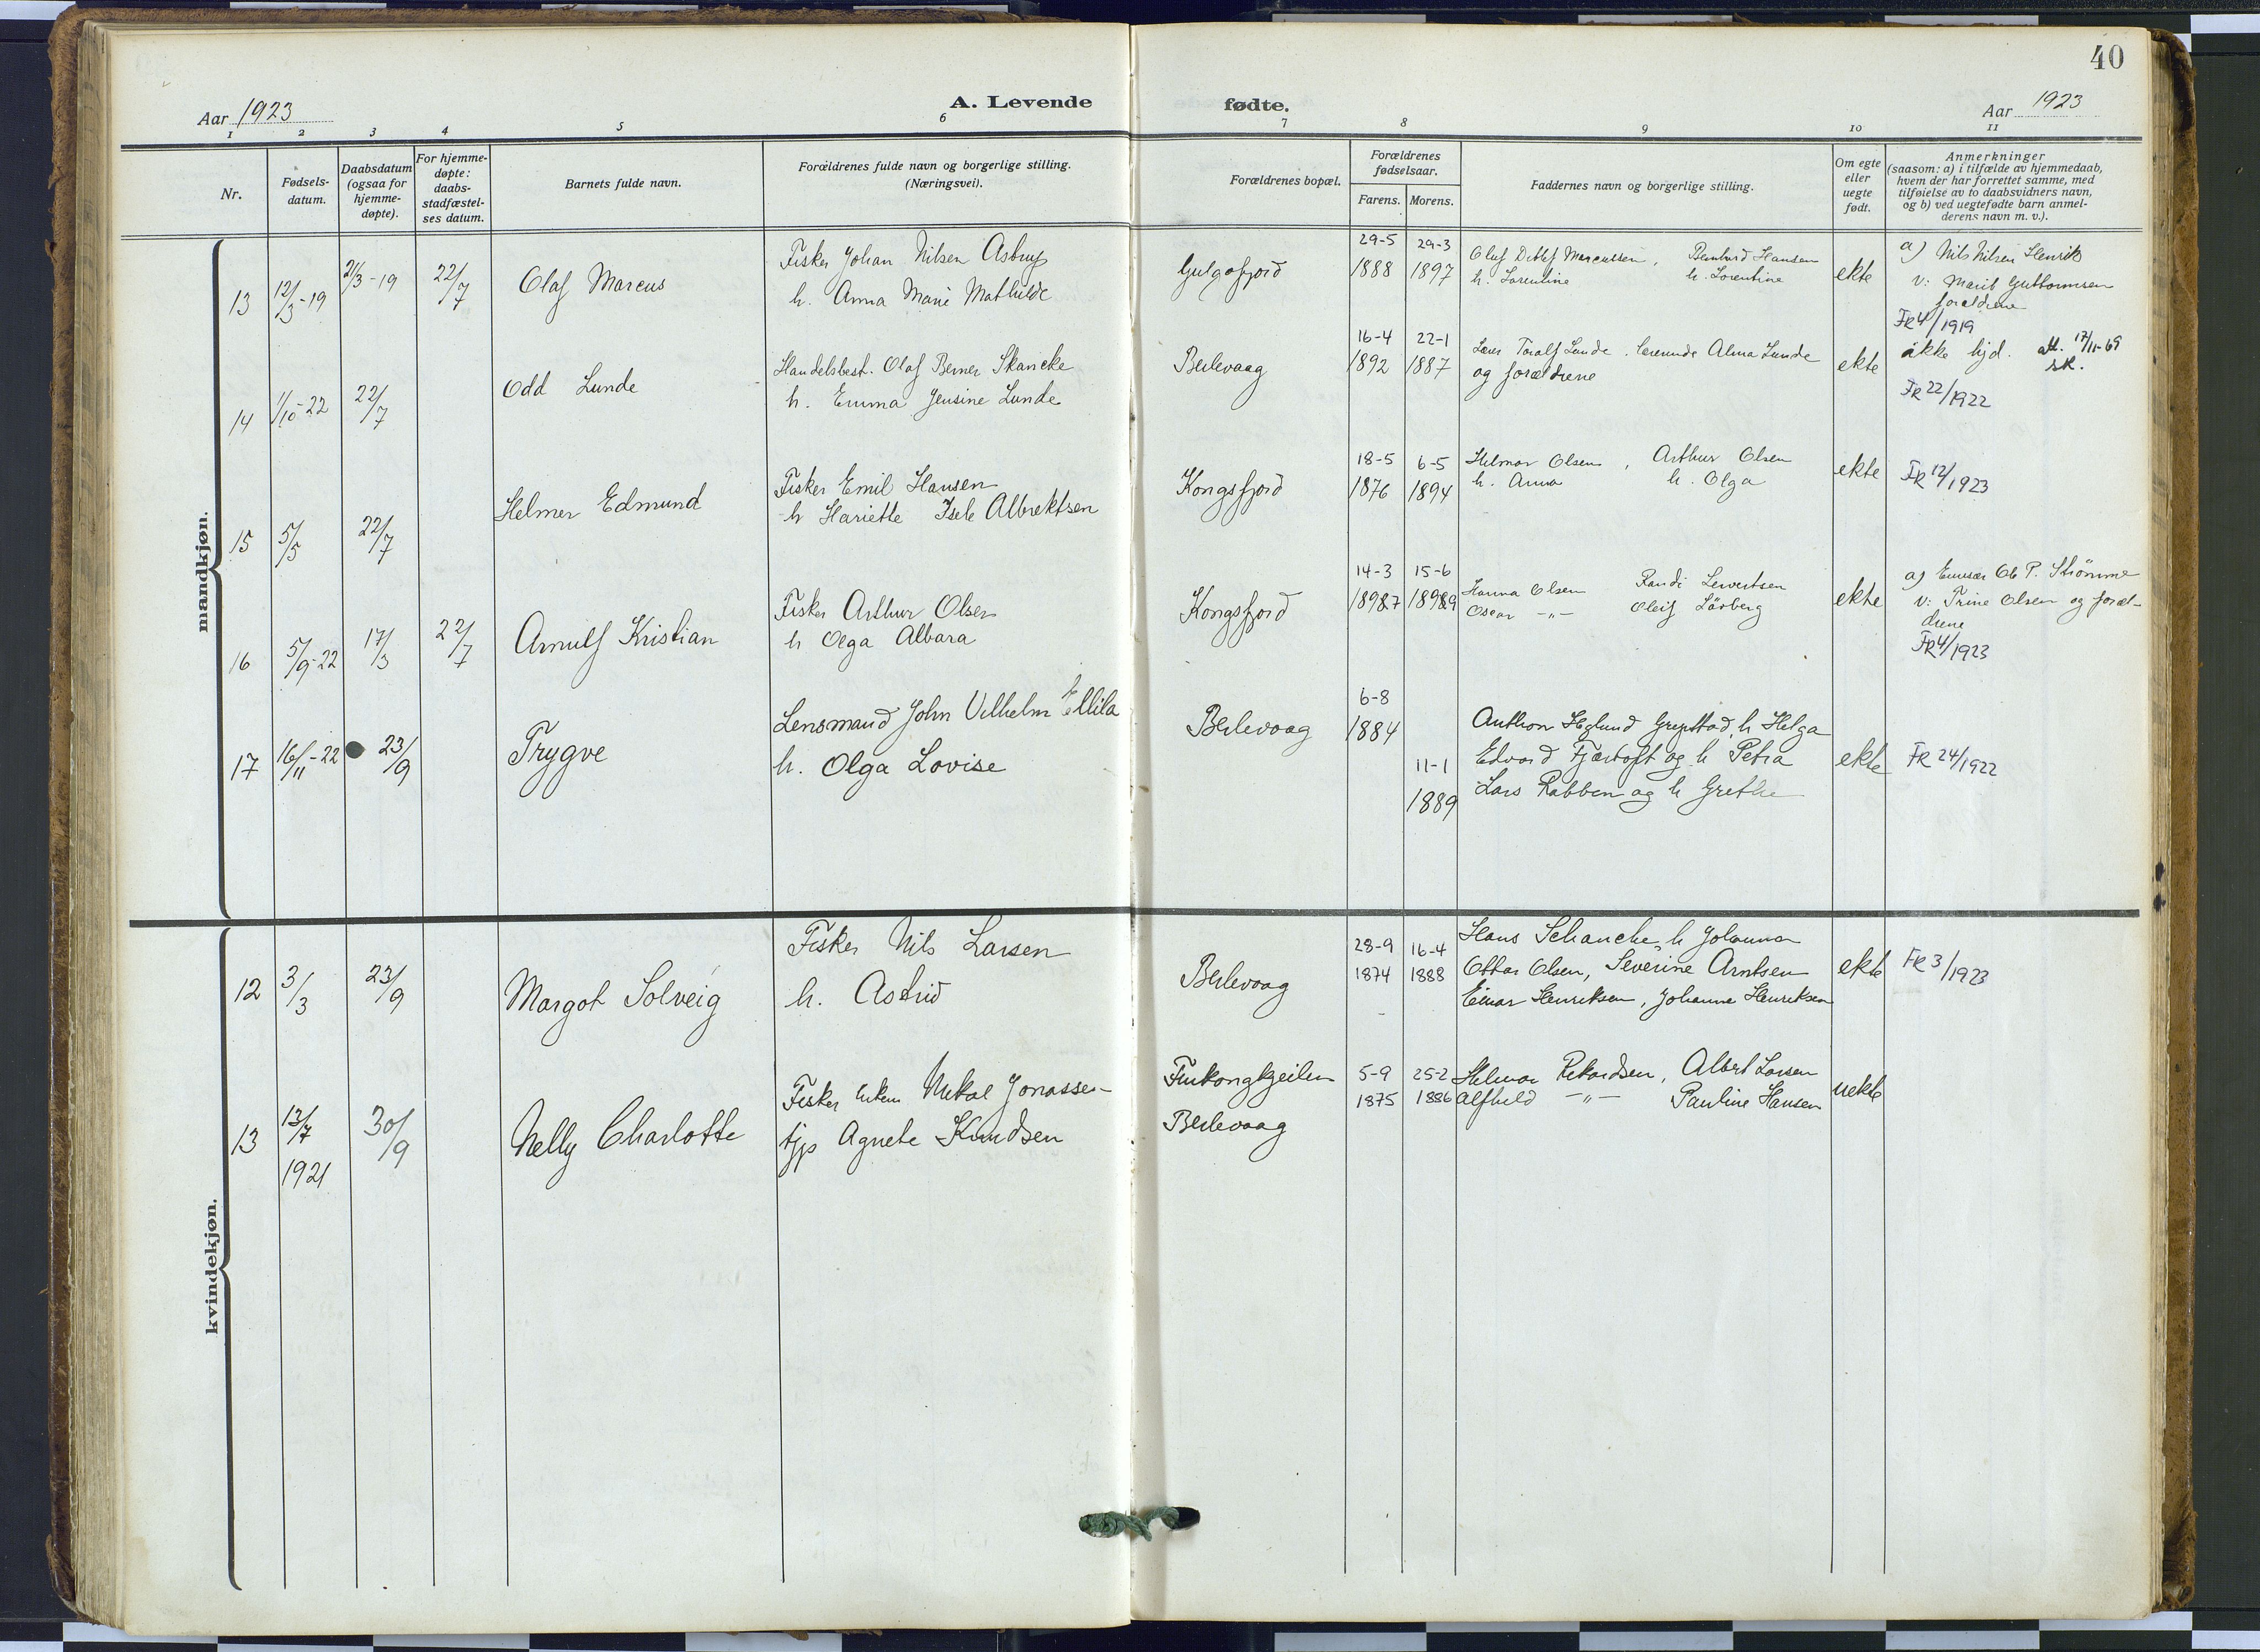 40
Aar 1923
A. Levende
fødte.
Aar 1923
1 2 3 4 5 6 7 8 9 10 11
Nr.
Fødsels-
datum.
Daabsdatum
(ogsaa for
hjemme-
døpte).
For hjemme-
døpte:
daabs-
stadfæstel-
ses datum.
Barnets fulde navn.
Forældrenes fulde navn og borgerlige stilling.
(Næringsvei).
Forældrenes bopæl.
Forældrenes
fødselsaar.
Farens. Morens.
Faddernes navn og borgerlige stilling.
Om egte
eller
uegte
født.
Anmerkninger
(saasom: a) i tilfælde av hjemmedaab,
hvem der har forrettet samme, med
tilføielse av to daabsvidners navn,
og b) ved uegtefødte barn anmel-
derens navn m. v.).
mandkjøn.
13 12/3-19 21/3-19 22/7 Olaf Marcus
Fisker Johan Nilsen
h. Anna Marie Mathilde
Gulgofjord
29-5 29-3
1888 1897
Oluf Ditlef Marcussen, Bernhard Hansen
h. Lorentine h. Lorentine
ekte
a) Nils Nilsen Henrik
v: Marit Guttormsen
forældrene
FR 4/1919
14 1/10-22 22/7 Odd Lunde
Handelsbest. Olaf Berner Skancke
h. Emma Jensine Lunde
Berlevaag
16-4 22-1
1892 1887
Lærer Toralf Lunde, lærerinde Alma Lunde
og forældrene
ekte
ikke hjd. att. 17/11-69
sk.
FR 22/1922
15 5/5 22/7 Helmer Edmund
Fisker Emil Hansen
h Hariette Albrektsen
Kongsfjord
18-5 6-5
1876 1894
Helmar Olsen, Arthur Olsen
h. Anna h. Olga
ekte
FR 12/1923
16 5/9-22 17/3 22/7 Arnulf Kristian
Fisker Arthur Olsen
h Olga Albara
Kongsfjord
14-3 15-6
Hanna Olsen Randi Levertsen
Oscar -"- Oleif Lövberg
ekte
a) Emisær Ob P. Strömme
v: Trine Olsen og foræl-
drene
FR 4/1923
17 16/11-22 23/9 Trygve
Lensmand John Vilhelm Ellila
h. Olga Lovise
Berlevaag
6-8
1884
11-1
1889
Anthon Heglund Grystad, h Helga
Edvard Fjærtoft og h Petra
Lars Rabben og h Grethe
ekte
FR 24/1922
kvindekjøn.
12 3/3 23/9 Margot Solveig
Fisker Nils Larsen
h. Astrid
Berlevaag
28-9 16-4
1874 1888
Hans Schancke, h Johanna
Ottar Olsen, Severine Arntsen
Einar Henriksen, Johanne Henriksen
ekte
FR 3/1923
13 13/7 1921 30/9 Nelly Charlotte
Fisker enkem Mikal Jonassen
tjp Agnete Knudsen
Finkongkjeilen
Berlevaag
5-9 25-2
1875 1886
Helmar Rikardsen, Albert Larsen
Alfhild -"- Pauline Hansen
uekte